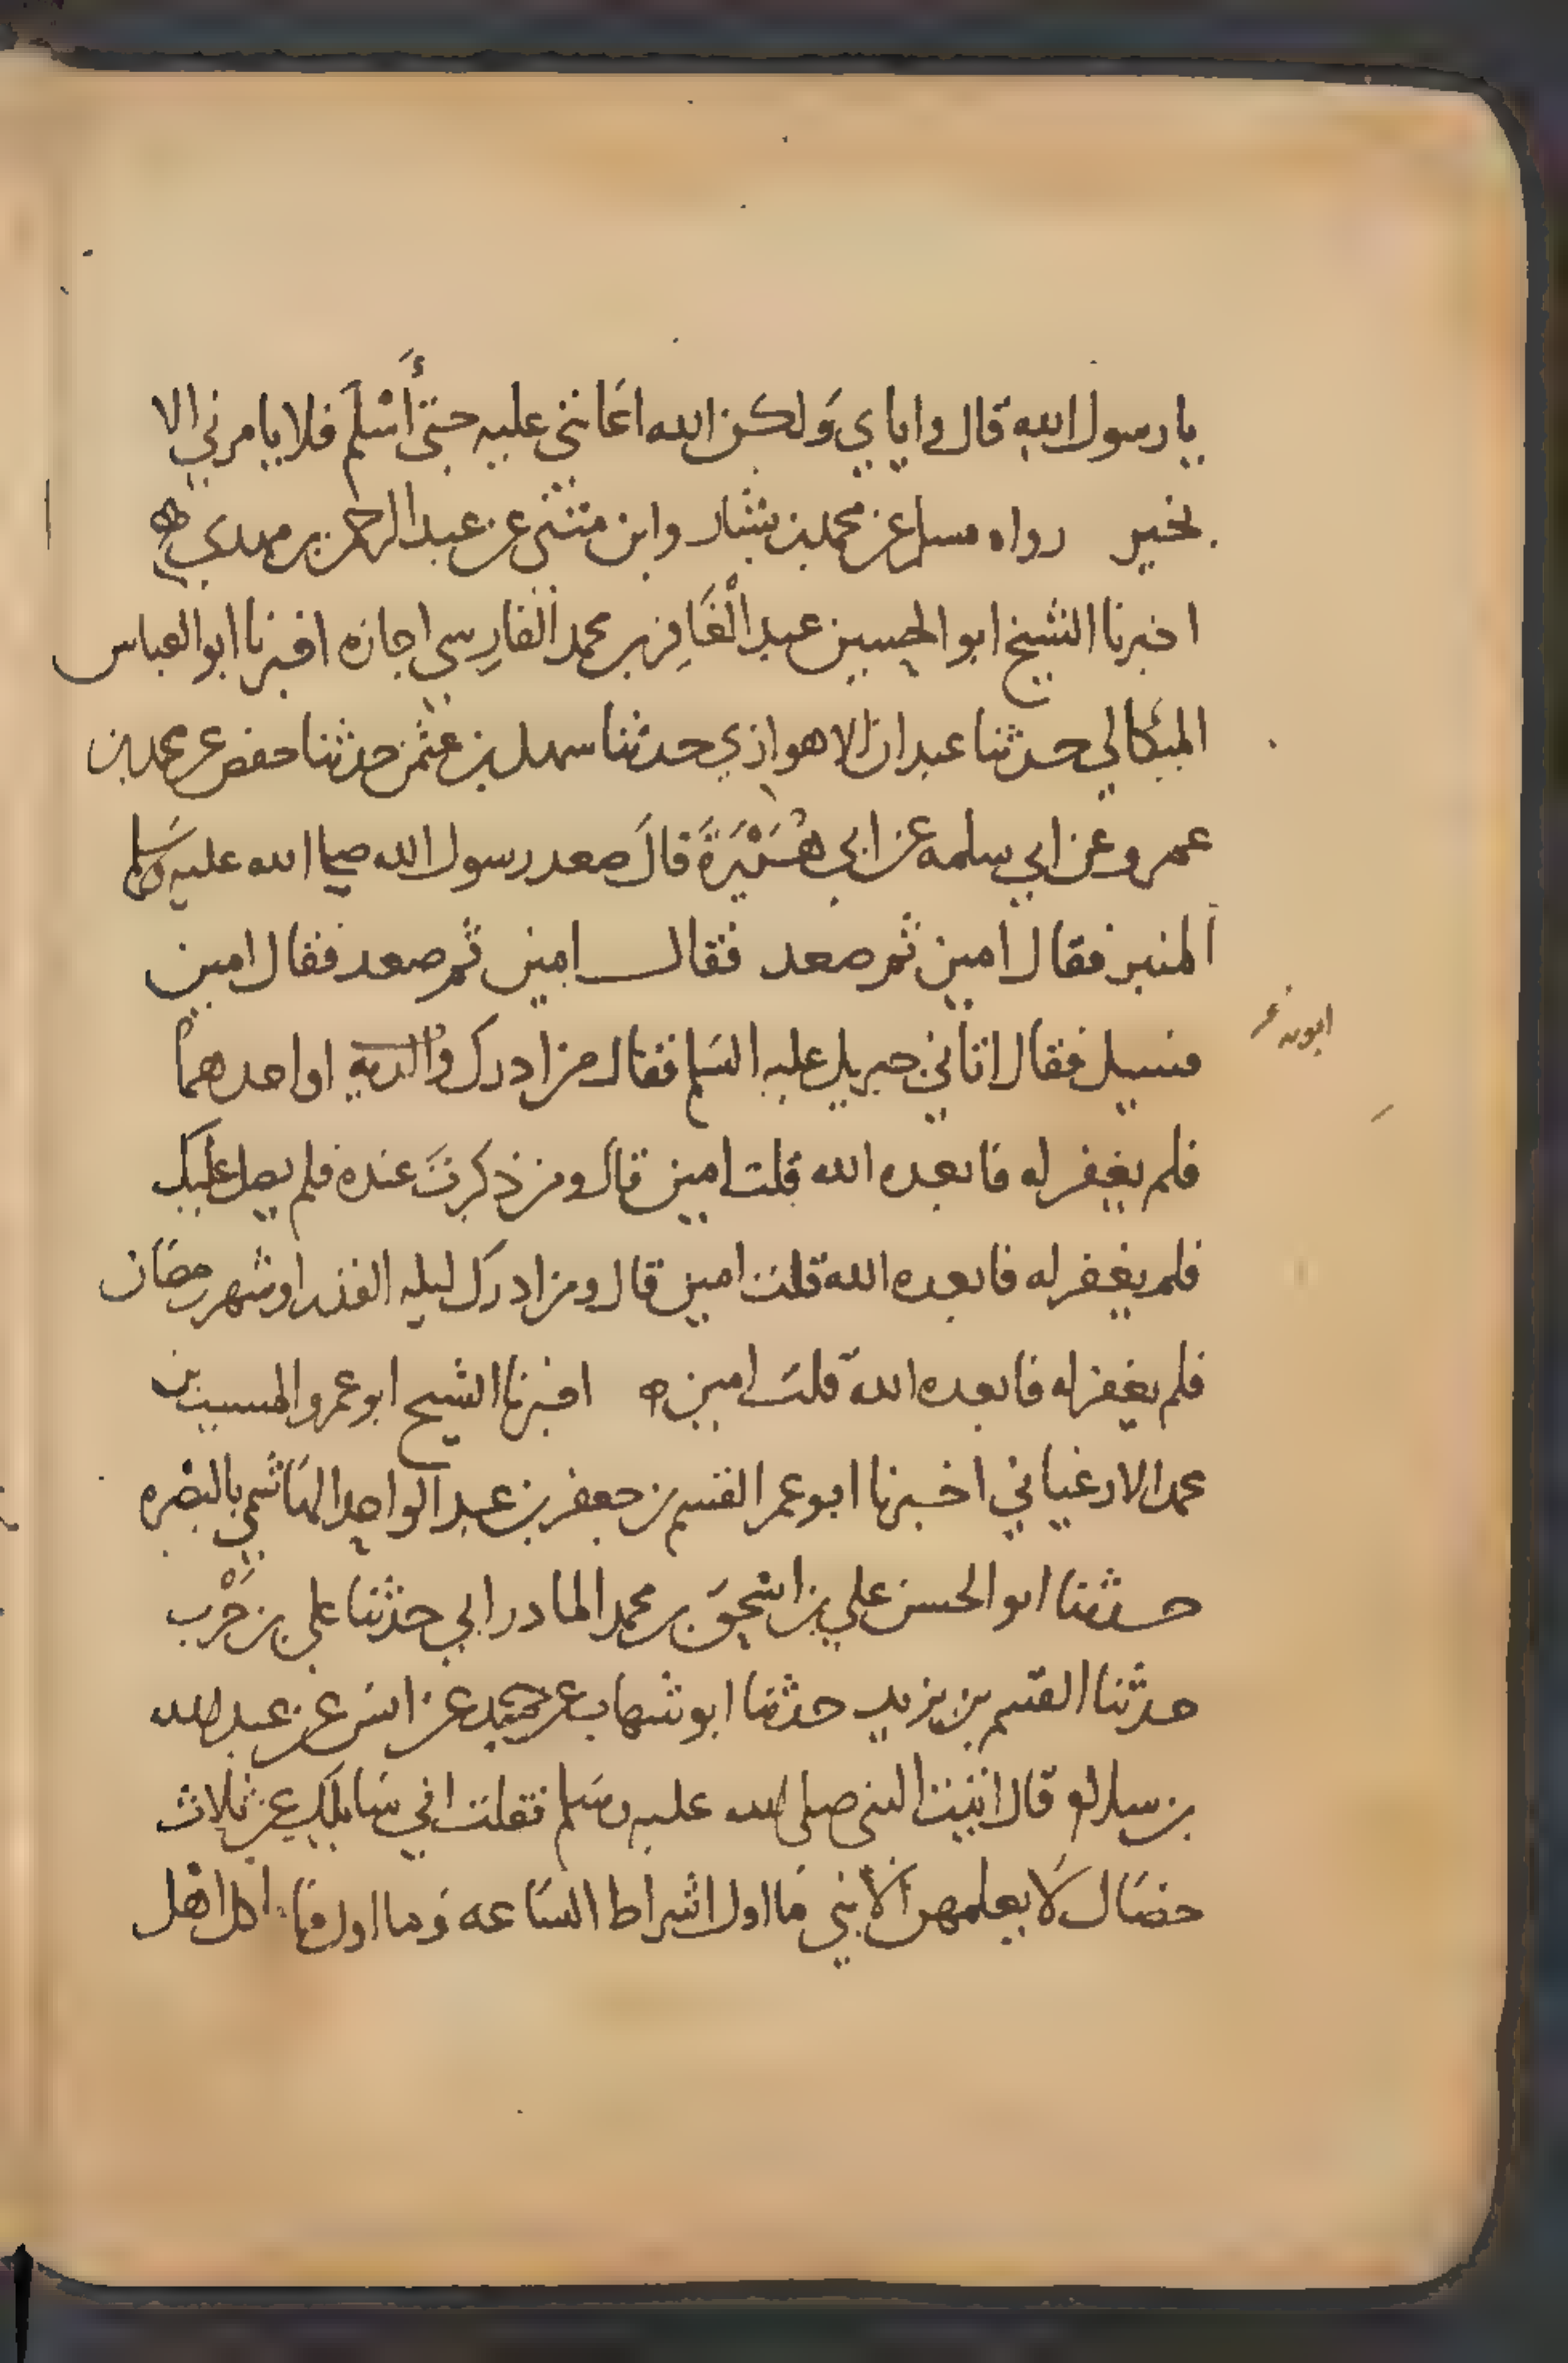 يا رسول الله قال واياي وَلكن الله اعَانني عليه حتىٰ أَسْلَم فلا يامرني الا
بخير رواه مسلم عن محمد بن بشار وابن مثنى عن عبد الرحمن بن مهدي ه
اخبرنا الشيخ ابو الحسين عبد الْغَافِر بن محمد الفارِسي اجازه اخبرنا ابو العباس
الميكالي حدثنا عبدان الاهوازي حدثنا سهل بن عثمن حدثنا حفص عن محمد بن
عمرو عن ابي سلمه عن ابي هُرَيْرَةَ قال صعد رسول الله صلى الله عليه وسلم
المنبر فقال امين ثم صعد فقال امين ثم صعد فقال امين
فسيل فقال اتاني جبريل عليه السلم فقال من ادرك والديه او احدهما
فلم يغفر له فابعده الله قلت امين قال ومن ذكرتَ عنده فلم يصل عليك
فلم يغفر له فابعده الله قلت امين قال ومن ادرك ليله القدر او شهر رمضان
فلم يغفر له فابعده الله قلت امين ه اخبرنا الشيخ ابو عمرو المسيب بن
محمد الارغياني اخبرنا ابو عمر القسم بن جعفر بن عبد الواحد الهاشمي بالبصره
حدثنا ابو الحسن علي بن اسحق بن محمد المادراىي حدثنا علي بن حَرْب
حدثنا القسم بن يزيد حدثنا ابو شهاب عن حميد عن انس عن عبد الله
بن سلام قال اتيت النبي صلى الله عليه وسلم فقلت اني سَايلك عن ثلاث
خصَال لا يعلمهن الا نبي مَا اول اشراط السَاعه وَما اول مَا ياكل اهل